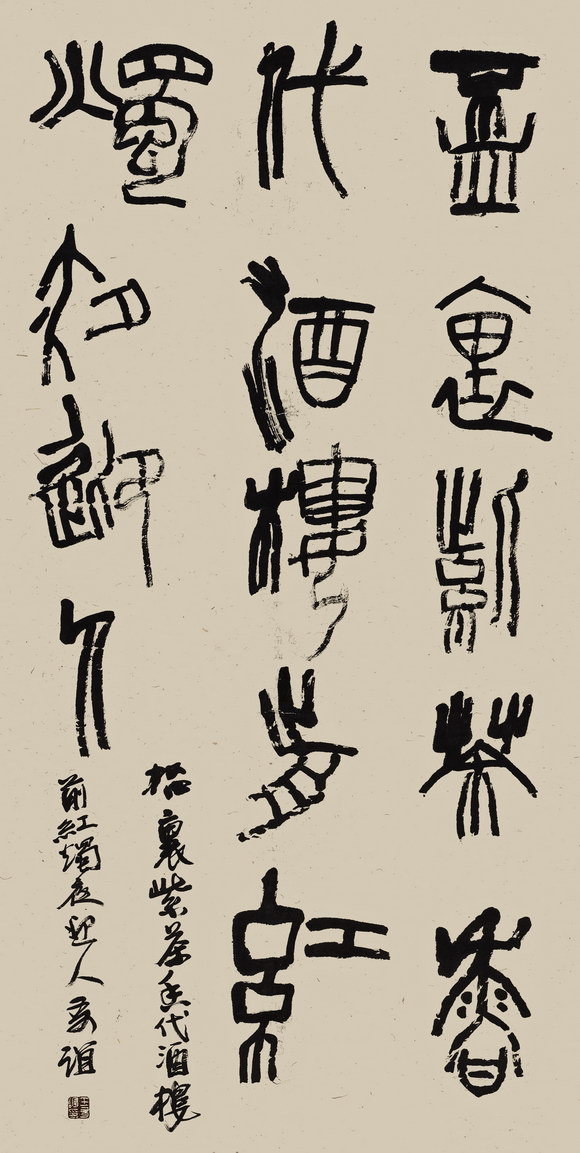 盃裏紫茶香
代酒樓前紅
燭夜迎人
裏紫茶香代酒樓
前紅燭夜迎人